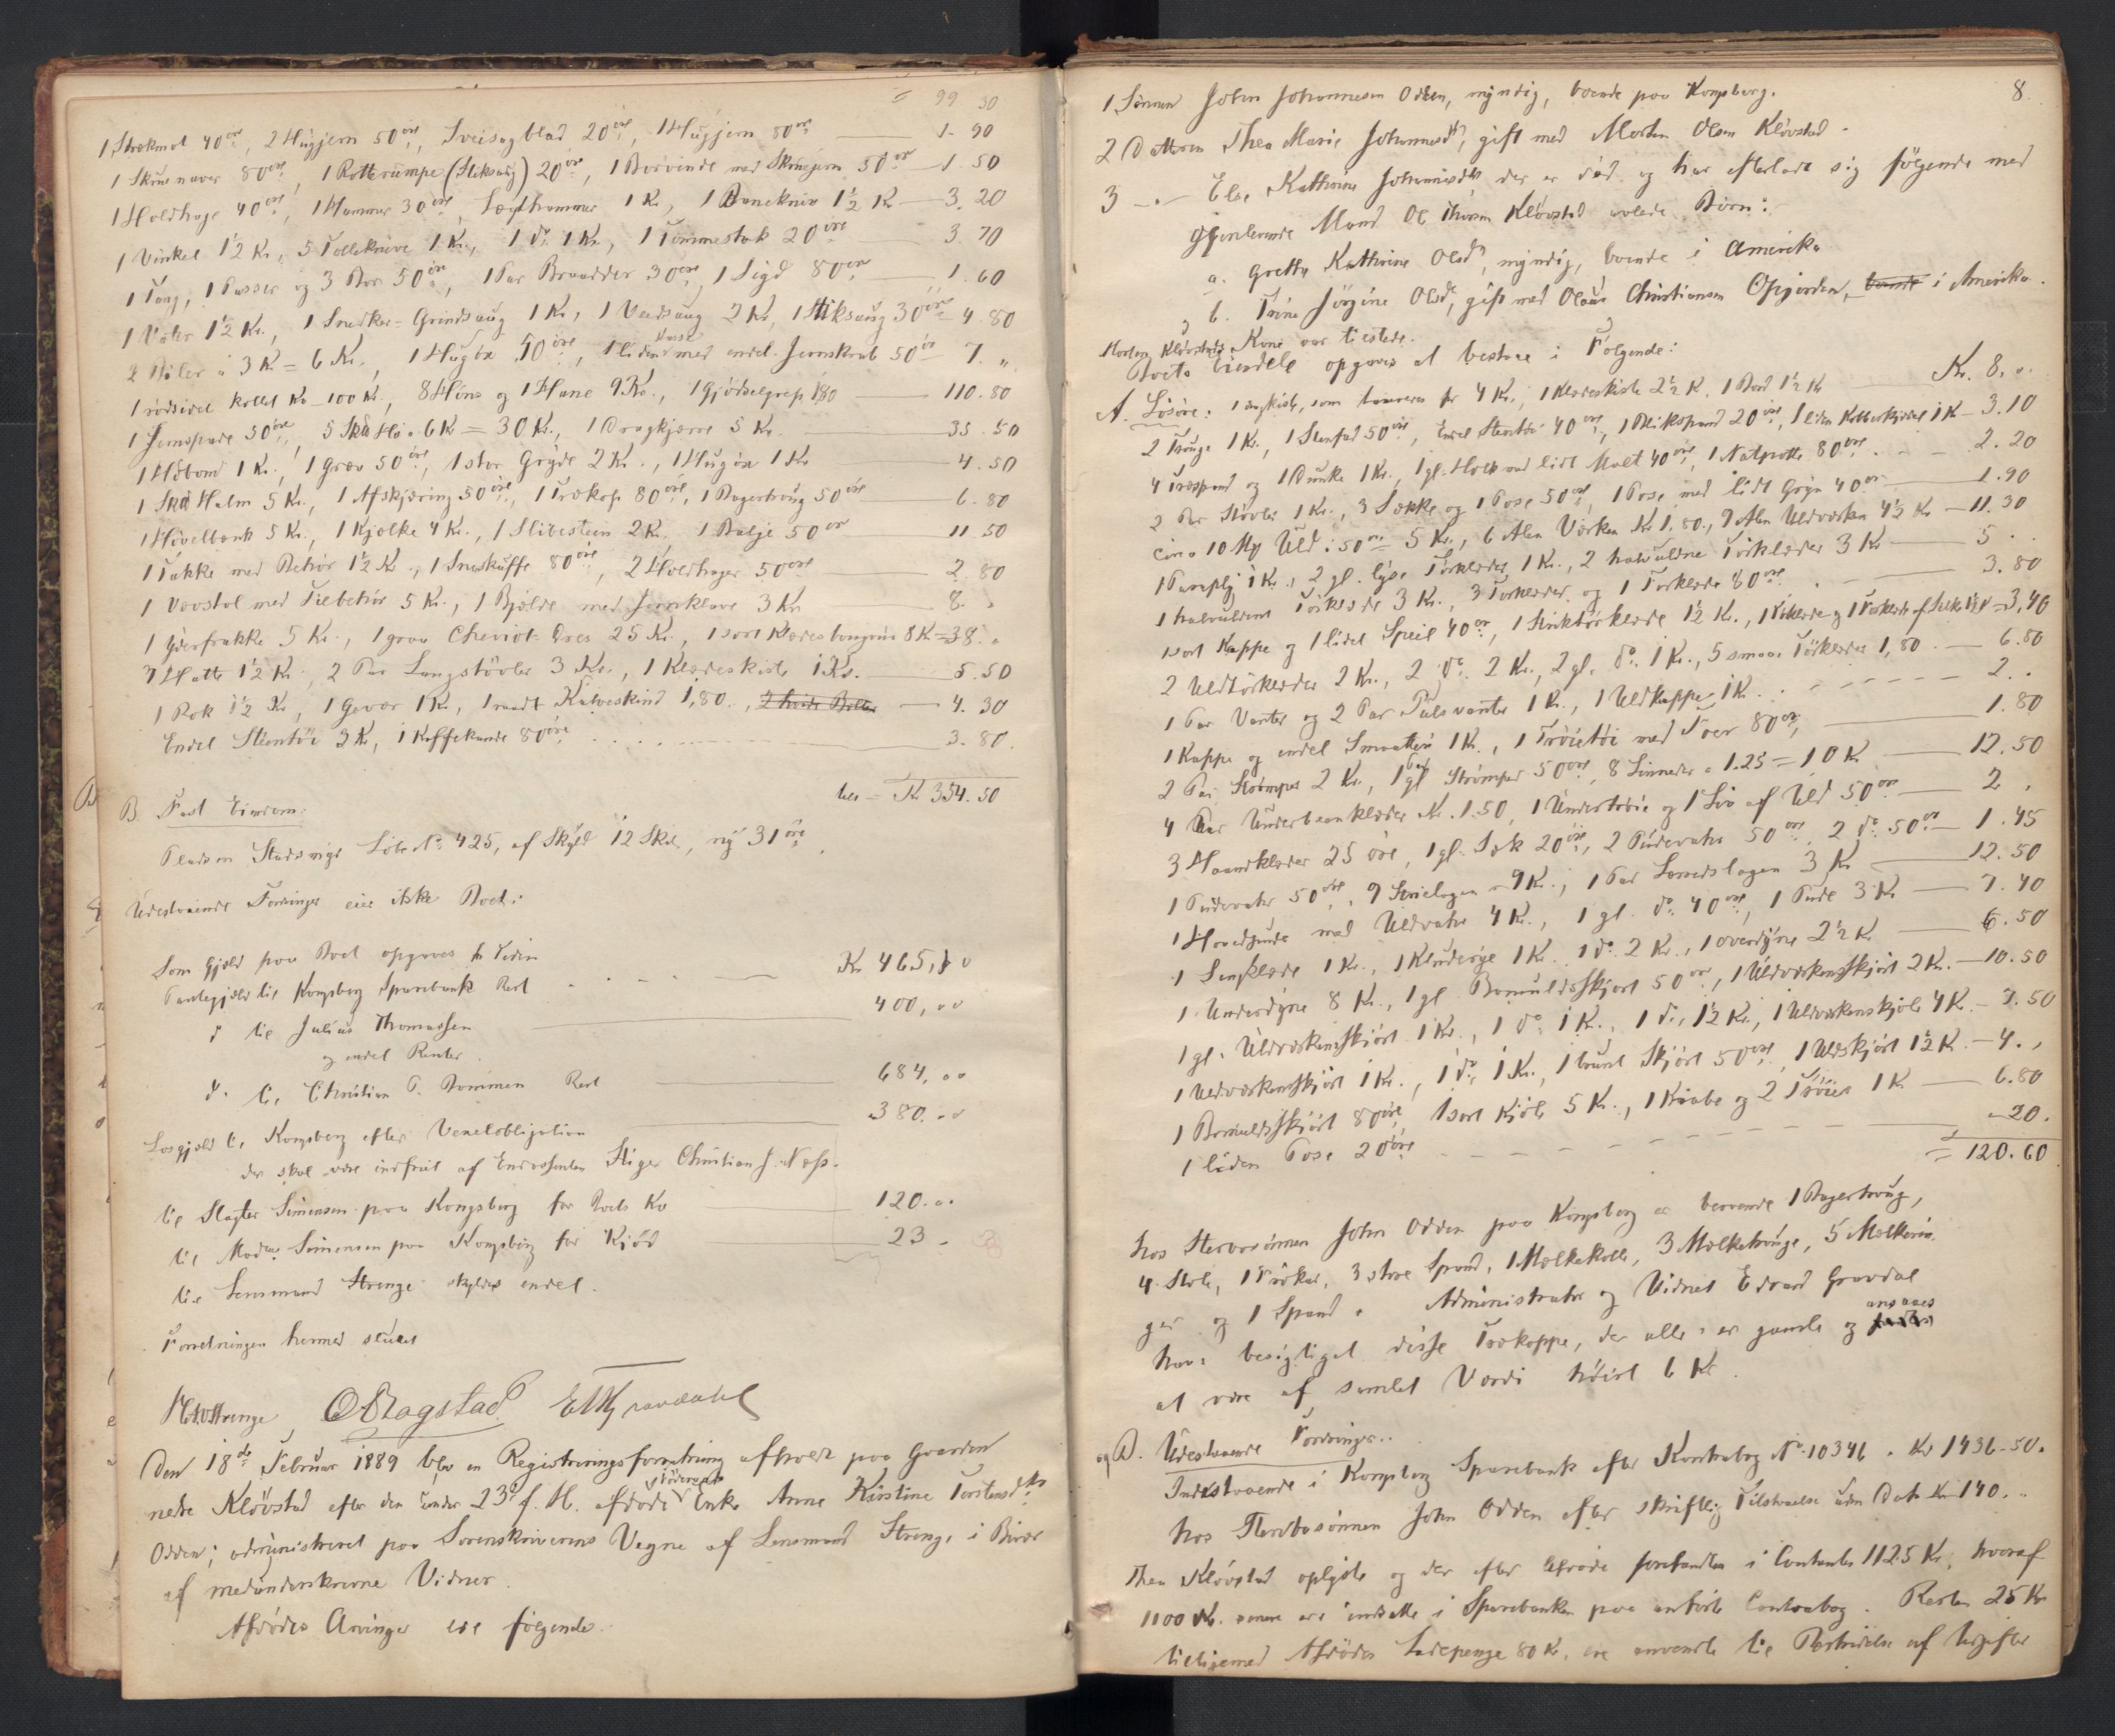 99 30
1 Strekmot 40 øre, 2 Hugjern 50 øre, Sveisagblad 20 øre, 1 Hugjern 80 øre — 1.90
1 Skruenaver 80 øre, 1 Rotterumpe (Stiksaug) 20 øre, 1 Borvinde med Skruejern 50 øre — 1.50
1 Holdhage 40 øre, 1 Hammer 30 øre, 1 Kr, 1 Baneknive 1½ Kr — 3.20
1 Vinkel 1½ Kr., 5 Tolleknive 1 Kr., 1 do 1 Kr., 1 Tommestok 20 øre — 3.70
1 Tang, 1 Passer og 3 Bor 50 øre, 1 Par 30 øre, 1 Sigd 80 øre — 1.60
1 Vater 1½ Kr., 1 Snedker-Grindsaug 1 Kr, 1 Vedsaug 2 Kr, 1 Stiksaug 30 øre — 4.80
2 à 3 K = 6 Kr., 1 Hugøx 50 øre, 1 liden Kasse med endel Jernskrab 50 øre 7. "
1 rødsidet kollet Ko — 100 Kr., 8 Høns og 1 Hane 9 Kr., 1 Gjødselgrep 1,80 — 110.80
1 Jernspade 50 øre, 5 Skd Hø à 6 K = 30 Kr., 1 Dragkjærre 5 Kr. — 35.50
1 Høbom 1 Kr., 1 Grev 50 øre, 1 stor Gryde 2 Kr., 1 Hugøx 1 Kr — 4.50
1 Skd Halm 5 Kr., 1 Afskjæring 50 øre, 1 Trækop 80 øre, 1 Bagertroug 50 øre — 6.80
1 Høvelbænk 5 Kr., 1 Kjælke 4 Kr., 1 Slibesteen 2 Kr. 1 Balje 50 ør 11.50
1 Takke med Behør 1½ Kr., 1 Sneskuffe 80 øre, 2 Holdhager 50 øre — 2.80
1 Vævstol med Tilbehør 5 Kr., 1 Bjelde med Jernklave 3 Kr. — 8. "
1 Yderfrakke 5 Kr., 1 graa Cheviot-Dres 25 Kr., 1 sort Klædesbongour 8 K = 38. "
3 Hatte 1½ Kr., 2 Par Langstøvler 3 Kr., 1 Klædeskiste 1 Kr. — 5.50
1 Rok 1½ Kr, 1 Gevær 1 Kr., 1 raadt Kalveskind 1,80. — 4.30
Endel Steentøi 3 Kr, 1 Kaffekande 80 øre — 3.80.
— Kr 354.50
B. Fast Eiendom.
Pladsen Stadsvige Løbe No 425, af Skyld 12 Sk., ny 31 øre.
Udestaaende Fordringer eier ikke Boet.
Som Gjæld paa Boet opgaves
Pantegjæld til Kongsberg Sparebank Rest — Kr 465,
do til Julius Thomassen — 400, ..
og endel Renter.
do til Christian P. Bommen Rest — 684, ..
Løsgjæld til Kongsberg efter Vexelobligation — 380. ..
der skal være indfriet af Endossenten Stiger Christian J. Næss.
til Slagter Simensen paa Kongsberg for Boets Ko — 120. ..
til Madm Simensen paa Kongsberg for Kjød — 23.
til Lensmand Strenge skyldes endel.
Forretningen hermed sluttet
Strenge O Bagstad E Gravdahl
Den 18de Februar 1889 blev en Registreringsforretning afholdt paa Gaarden
nedre Kløvstad efter den under 23de f. M. afdøde Enke Anne Kirstine Torstensdtr
Odden; administreret paa Sorenskriverens Vegne af Lensmand Strenge i Bivær
af medunderskrevne Vidner.
Afdødes Arvinger ere følgende.
8.
1 Sønnen John Johannesen Odden, myndig, boende paa Kongsberg.
2 Datteren Thea Marie Johannesdtr, gift med Morten Olsen Kløvstad.
3 —"— Else Kathrine Johannesdtr, der er død og har efterladt sig følgende med
gjenlevende Mand Ole Thoresen Kløvstad avlede Børn:
a. Grethe Kathrine Olsdtr, myndig, boende i Amerika
b. Trine Jørgine Olsdtr, gift med Olaus Christiansen Opjorden, boende i Amerika.
Morten Kløvstads Kone var tilstede.
Boets Eiendele opgaves at bestaae i Følgende:
A. Løsøre: 1 Dragkiste, som taxeres for 4 Kr., 1 Klædeskiste 2½ K. 1 Bord 1½ Kr — Kr. 8. ..
2 Trouge 1 Kr., 1 Stenfad 50 øre, Endel Stentøi 40 øre, 1 Blikspand 20 øre, 1 liden Kobberkjedel 1 K — 3.10
4 Træspand og 1 Dunke 1 Kr., 1 gl. Holk med lidt Malt 40 øre, 1 Natpotte 80 øre — 2.20
2 Par Støvler 1 Kr., 3 Sække og 1 Pose 50 øre, 1 Pose med lidt Gryn 40 ør — 1.90
Circa 10 Mkg Uld à 50 øre = 5 Kr., 6 Alen Værken Kr 1.80, 9 Alen Uldværken 4½ Kr — 11.30
1 Paraply 1 Kr., 2 gl. lyse Tørklæder 1 Kr., 2 halvuldne Tørklæder 3 Kr — 5. .
1 halvuldent Tørklæde 3 Kr., 3 Forklæder og 1 Forklæde 80 øre — 3.80
1 sort Kappe og 1 lidet Speil 40 ør, 1 Striktørklæde 1½ Kr., 1 Tørklæde og 1 Forklæde af Silke 1½ = 3,40
2 Uldtørklæder 2 Kr., 2 do 2 Kr., 2 gl. do 1 Kr., 5 smaa Tørklæder 1,80. — 6.80
1 Par Vanter og 2 Par Pulsvanter 1 Kr., 1 Uldkappe 1 Kr. — 2. .
1 Kappe og endel Smaatteri 1 Kr., 1 Trøietøi med Foer 80 øre — 1.80
2 Par Strømper 2 Kr., 1 gl Par Strømper 50 øre, 8 Linneder à 1.25 = 10 Kr — 12.50
4 Par Underbenklæder Kr. 1.50, 1 Undertrøie og 1 Liv af Uld 50 øre — 2. .
3 Haandklæder 25 øre, 1 gl. Sæk 20 øre, 2 Pudevahr 50 øre, 2 do 50 øre — 1.45
1 Pudevahr 50 øre, 9 Strielagen — 9 Kr., 1 Par Lærredslagen 3 Kr — 12.50
1 Hovedpude med Uldvahr 4 Kr., 1 gl. do 40 øre, 1 Pude 3 Kr — 7.40
1 Sengklæde 1 Kr., 1 Kluderye 1 Kr. 1 do 2 Kr., 1 Overdyne 2½ Kr — 6.50
1 Underdyne 8 Kr., 1 gl. Bomuldsskjort 50 øre, 1 Uldværkensskjørt 2 Kr. — 10.50
1 gl. Uldværkensskjørt 1 Kr., 1 do 1 Kr., 1 do 1½ Kr., 1 Uldværkenskjole 4 Kr. — 7.50
1 Uldværkensskjørt 1 Kr., 1 do 1 Kr., 1 brunt Skjørt 50 øre, 1 Uldskjørt 1½ Kr. — 4. .
1 Bomuldsskjørt 80 øre, 1 sort Kjole 5 Kr., 1 Kaabe og 2 Trøier 1 Kr — 6.80
1 liden Pose 20 øre — 20.
= 120.60
Hos Stervbosønnen John Odden paa Kongsberg er beroende 1 Bagertroug,
4 Stole, 1 Prøker, 3 store Spand, 1 Mælkekolle, 3 Mælketrouge, 5 Mælkerin-
ger og 1 Spand. Administrator og Vidnet Edvard Gravdal
have besigtiget disse Trækopper, der alle er gamle og ansaaes
at være af samlet Værdi høist 6 Kr.
og D. Udestaaende Fordringer.
Indestaaende i Kongsberg Sparebank efter Kontrabog No. 10346. Kr 1436-50.
hos Stervbosønnen John Odden efter skriftlig Tilstaaelse uden Dato Kr 140. ..
Thea Kløvstad oplyste og der efter Afdøde forefandtes i Contanter 1125 Kr, hvoraf
1100 Kr. senere ere indsatte i Sparebanken paa anførte Contrabog. Resten 25 Kr
tilligemed Afdødes Ladepenge 80 Kr. ere anvendte til Bestridelse af Udgifter